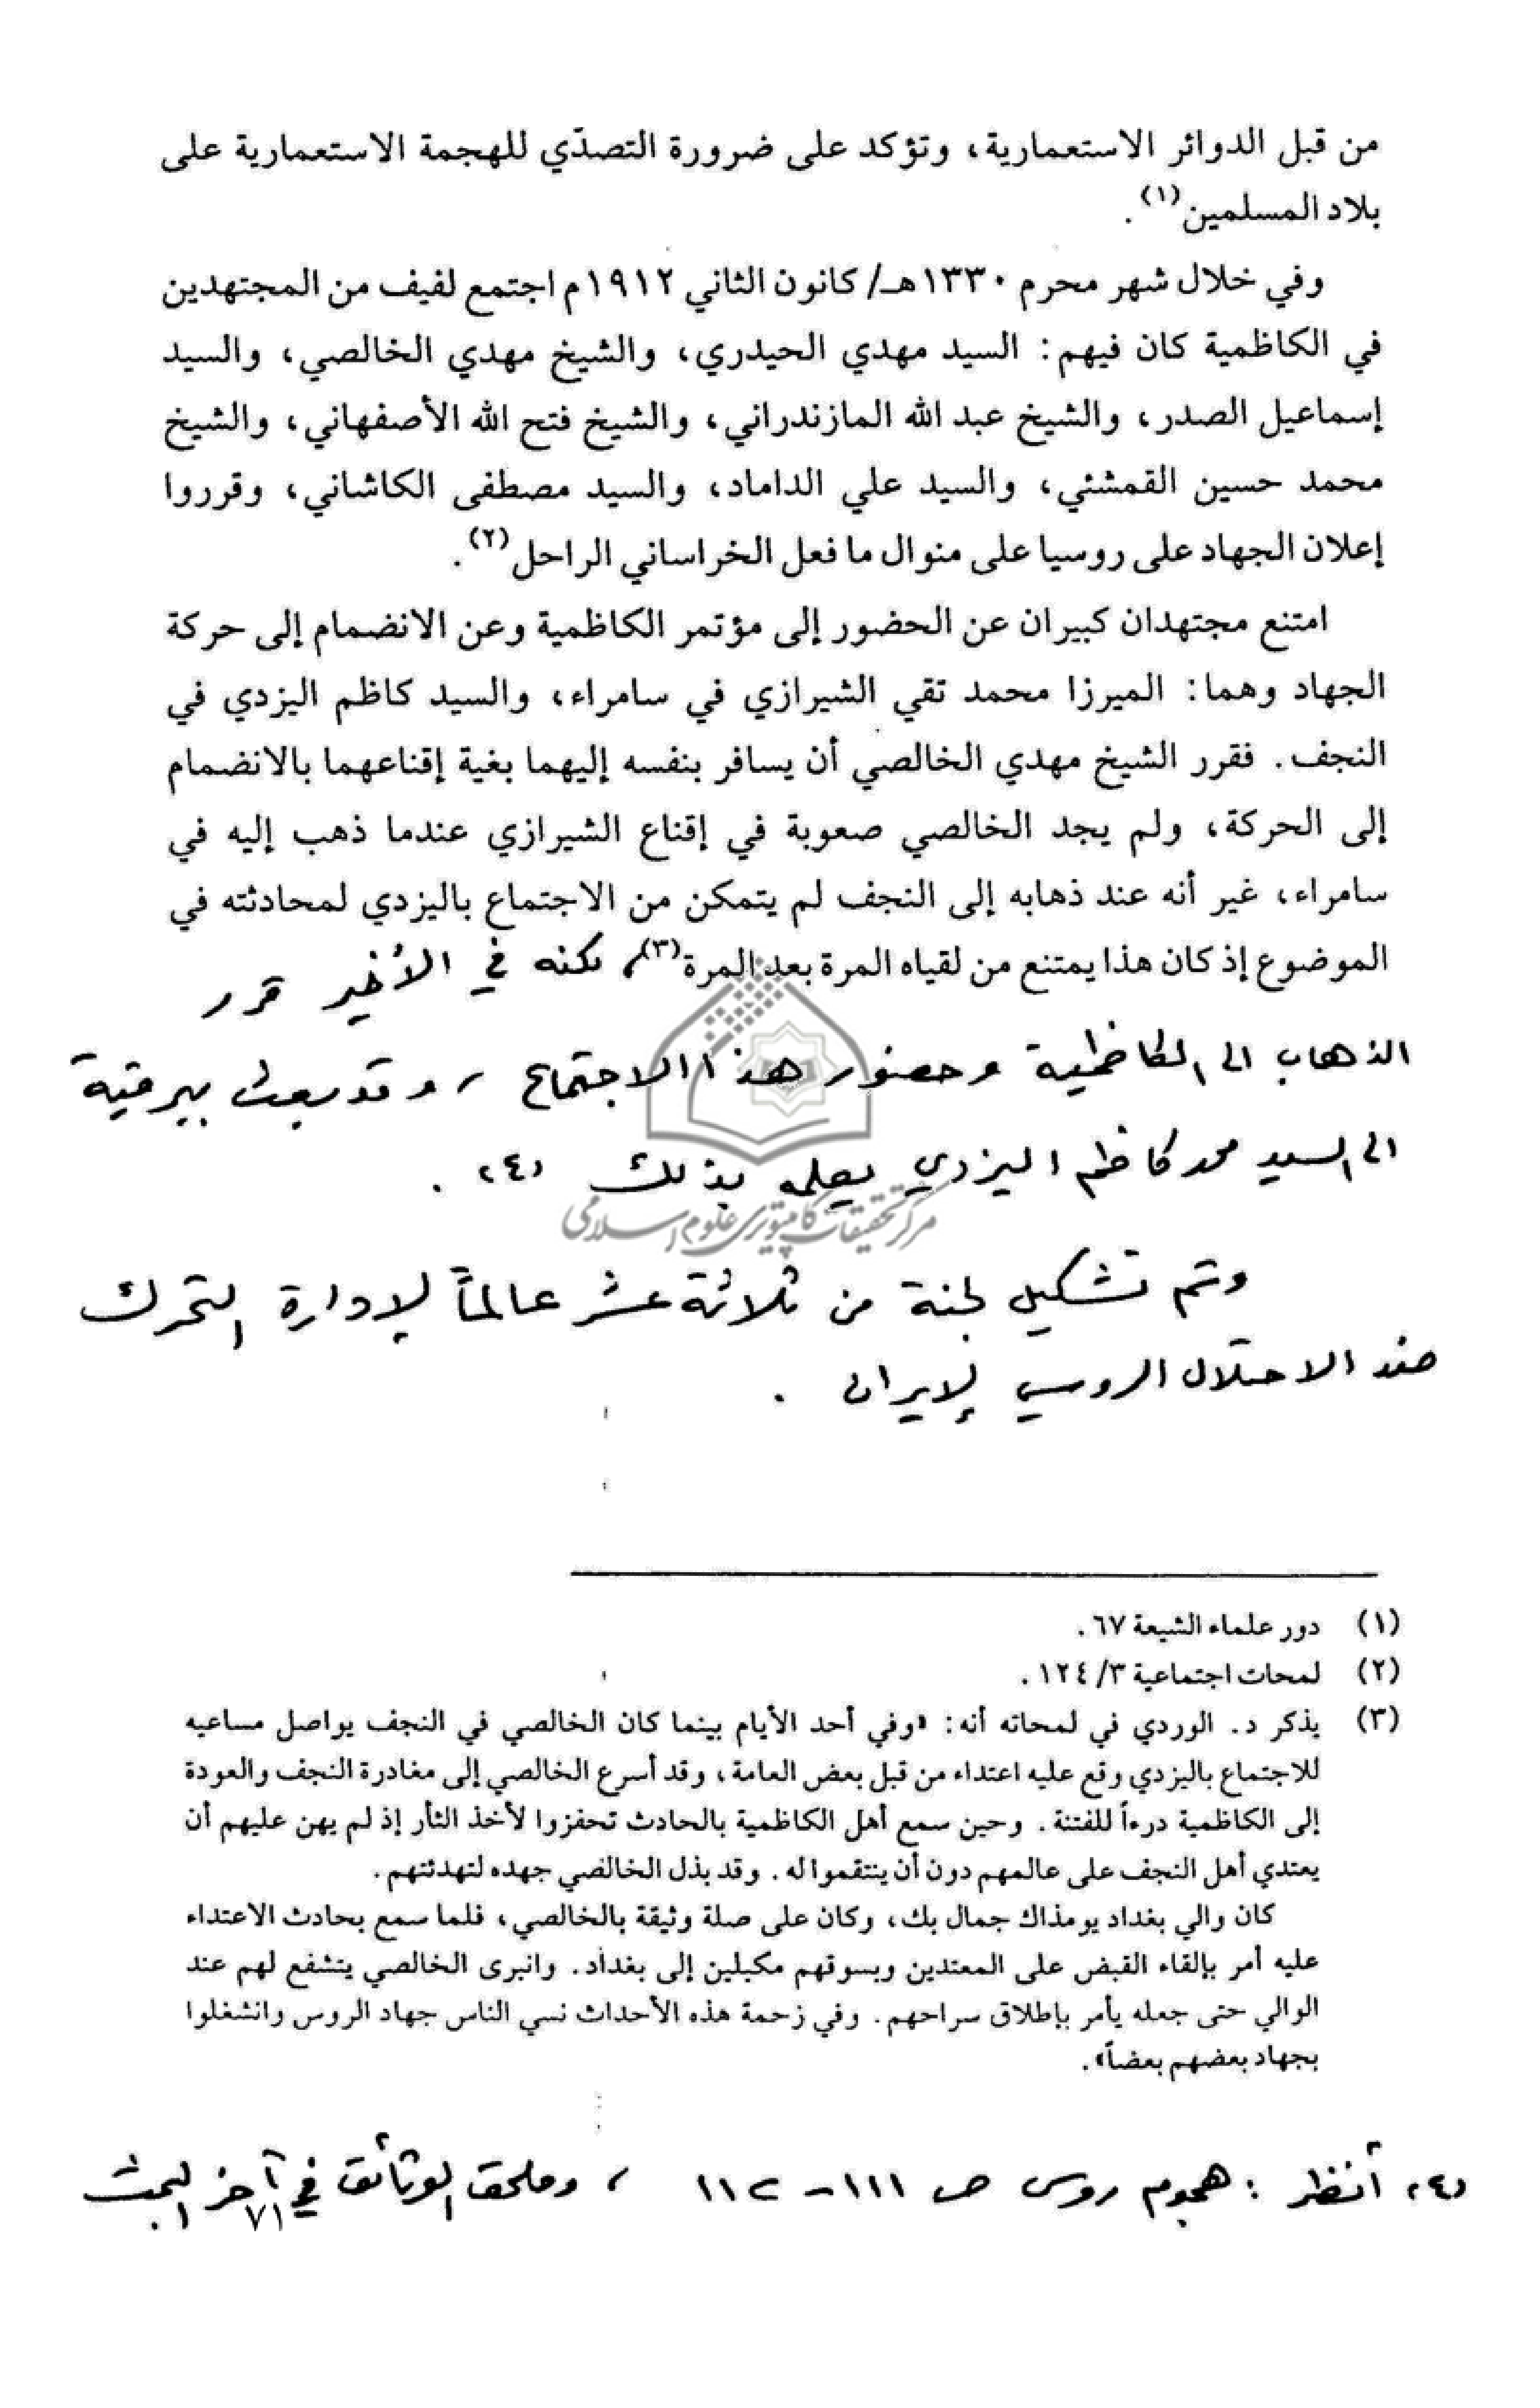 من قبل الدوائر الاستعمارية، وتؤكد على ضرورة التصدّي للهجمة الاستعمارية على
بلاد المسلمين(١).
وفي خلال شهر محرم ١٣٣٠هـ/ كانون الثاني ١٩١٢م اجتمع لفيف من المجتهدين
في الكاظمية كان فيهم: السيد مهدي الحيدري، والشيخ مهدي الخالصي، والسيد
إسماعيل الصدر، والشيخ عبد الله المازندراني، والشيخ فتح الله الأصفهاني، والشيخ
محمد حسين القمشئي، والسيد علي الداماد، والسيد مصطفى الكاشاني، وقرروا
إعلان الجهاد على روسيا على منوال ما فعل الخراساني الراحل(٢).
امتنع مجتهدان كبيران عن الحضور إلى مؤتمر الكاظمية وعن الانضمام إلى حركة
الجهاد وهما: الميرزا محمد تقي الشيرازي في سامراء، والسيد كاظم اليزدي في
النجف. فقرر الشيخ مهدي الخالصي أن يسافر بنفسه إليهما بغية إقناعهما بالانضمام
إلى الحركة، ولم يجد الخالصي صعوبة في إقناع الشيرازي عندما ذهب إليه في
سامراء، غير أنه عند ذهابه إلى النجف لم يتمكن من الاجتماع باليزدي لمحادثته في
الموضوع إذ كان هذا يمتنع من لقياه المرة بعد المرة(٣)، لكنه في الأخير قرر
الذهاب الى الكاظمية وحضور هذا الاجتماع، وقد بعث ببرقية
الى السيد محمد كاظم اليزدي يعلمه بذلك (٤).
مركز تحقيقات كامپيوترى علوم اسلامى
وتم تشكيل لجنة من ثلاثة عشر عالماً لإدارة التحرك
ضد الاحتلال الروسي لإيران.
(١) دور علماء الشيعة ٦٧.
(٢) لمحات اجتماعية ٣/ ١٢٤.
(٣) يذكر د. الوردي في لمحاته أنه: «وفي أحد الأيام بينما كان الخالصي في النجف يواصل مساعيه
للاجتماع باليزدي وقع عليه اعتداء من قبل بعض العامة، وقد أسرع الخالصي إلى مغادرة النجف والعودة
إلى الكاظمية درءاً للفتنة. وحين سمع أهل الكاظمية بالحادث تحفزوا لأخذ الثأر إذ لم يهن عليهم أن
يعتدي أهل النجف على عالمهم دون أن ينتقموا له. وقد بذل الخالصي جهده لتهدئتهم.
كان والي بغداد يومذاك جمال بك، وكان على صلة وثيقة بالخالصي، فلما سمع بحادث الاعتداء
عليه أمر بإلقاء القبض على المعتدين وبسوقهم مكبلين إلى بغداد. وانبرى الخالصي يتشفع لهم عند
الوالي حتى جعله يأمر بإطلاق سراحهم. وفي زحمة هذه الأحداث نسي الناس جهاد الروس وانشغلوا
بجهاد بعضهم بعضاً».
(٤) أنظر: هجوم روس ص ١١١-١١٢، وملحق الوثائق في آخر البحث.
٧١